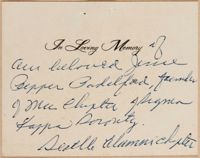 In Loving Memory of
our beloved Jessie
Pepper Padelford, founder
of Mu Chapter of Sigma
Kappa Sorority
Seattle Alumni chapter